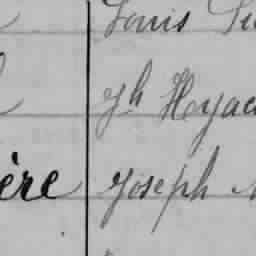 Louis
Jh Hyac
ère Joseph